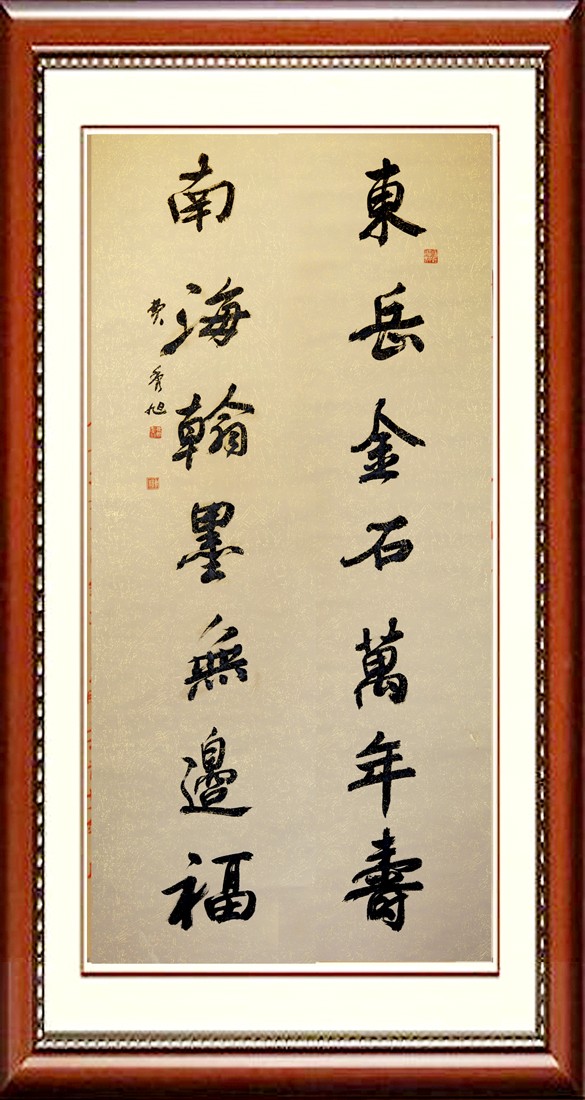 東岳金石萬年壽
南海翰墨無邊福
費秀旭